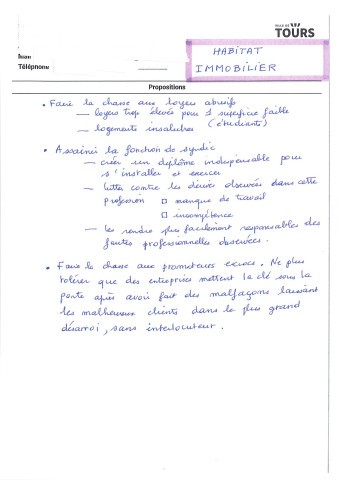 VILLE DE
TOURS
Nom
Téléphone
HABITAT
IMMOBILIER
Propositions
• Faire la chasse aux loyers abusifs
— loyers trop élevés pour 1 superficie faible
— logements insalubres (étudiants)
• Assainir la fonction de syndic
— créer un diplôme indispensable pour
s'installer et exercer
— lutter contre les dérives observées dans cette
profession □ manque de travail
□ incompétence
— les rendre plus facilement responsables des
fautes professionnelles observées.
• Faire la chasse aux promoteurs escrocs. Ne plus
tolérer que des entreprises mettent la clé sous la
porte après avoir fait des malfaçons laissant
les malheureux clients dans le plus grand
désarroi, sans interlocuteur.